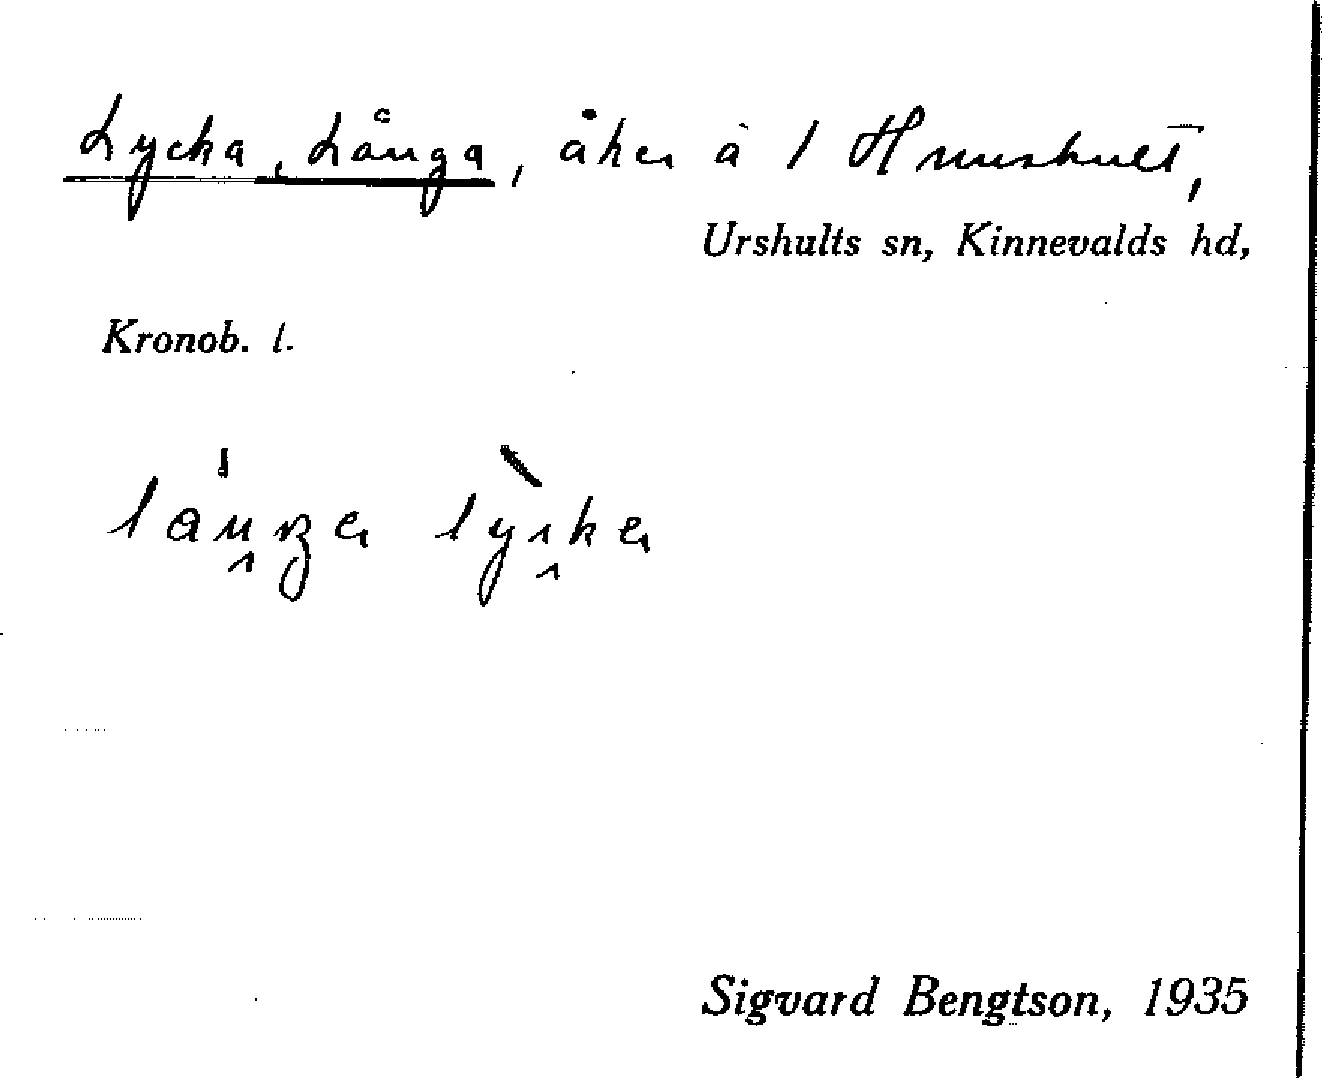 Lycka, Långa, åker å 1 Hunshult,
Urshults sn, Kinnevalds hd,
Kronob. l.
Sigvard Bengtson, 1935